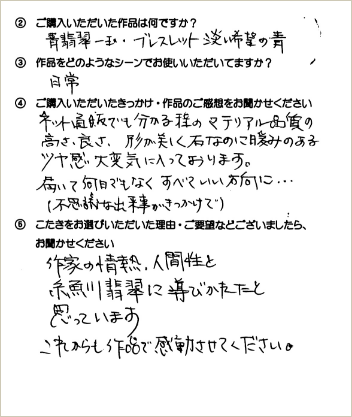 ② ご購入いただいた作品は何ですか？
青翡翠一玉・ブレスレット 淡い希望の青
③ 作品をどのようなシーンでお使いいただいてますか？
日常
④ ご購入いただいたきっかけ・作品のご感想をお聞かせください
ネット通販でも分かる程のマテリアル品質の
高さ、良さ、形が美しく石なのに暖みのある
ツヤ感。大変気に入っております。
届いて何日でもなくすべていい方向に…
（不思議な出来事がきっかけで）
⑤ こたきをお選びいただいた理由・ご要望などございましたら、
お聞かせください
作家の情熱、人間性と
糸魚川翡翠に導びかれたと
思っています
これからも作品で感動させてください。